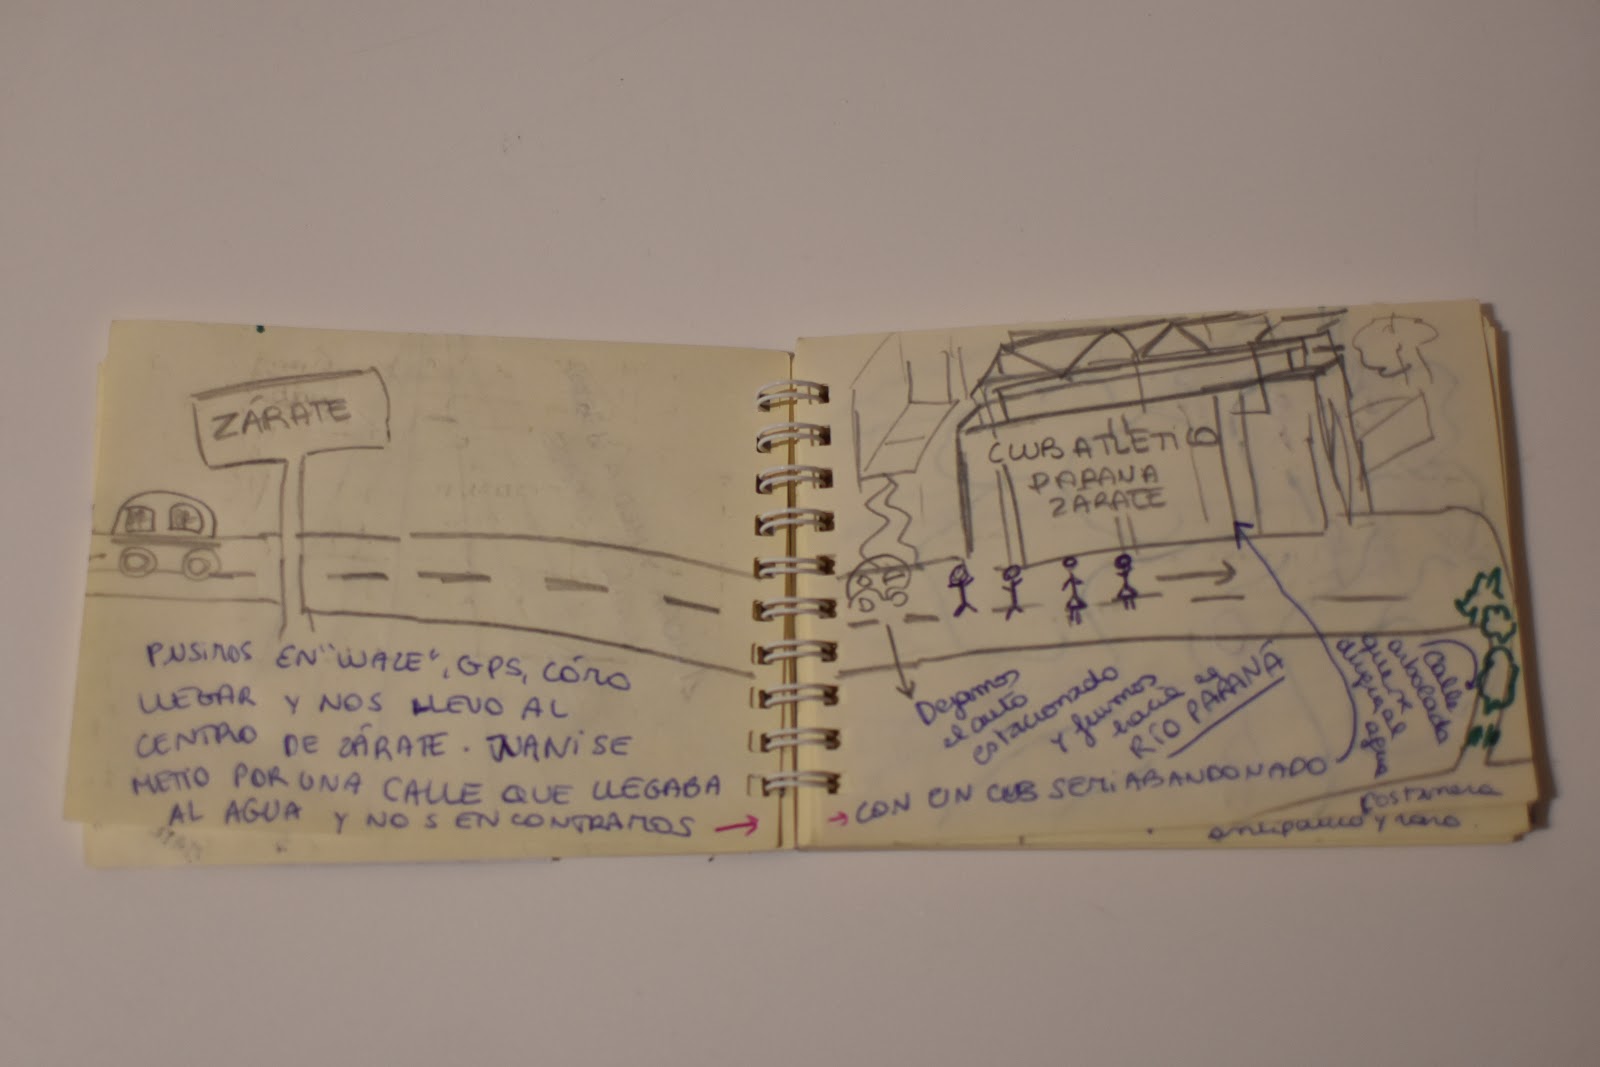 ZÁRATE
PUSIMOS EN "WAZE", GPS, CÓMO
LLEGAR Y NOS LLEVO AL
CENTRO DE ZÁRATE. JUANI SE
METIO POR UNA CALLE QUE LLEGABA
AL AGUA Y NOS ENCONTRAMOS →
CLUB ATLETICO
PARANA
ZÁRATE
Dejamos
el auto
estacionado
y fuimos
hacia el
RÍO PARANÁ
→ CON UN CLUB SEMIABANDONADO
Calle
arbolada
que x
al agua
Costanera
y